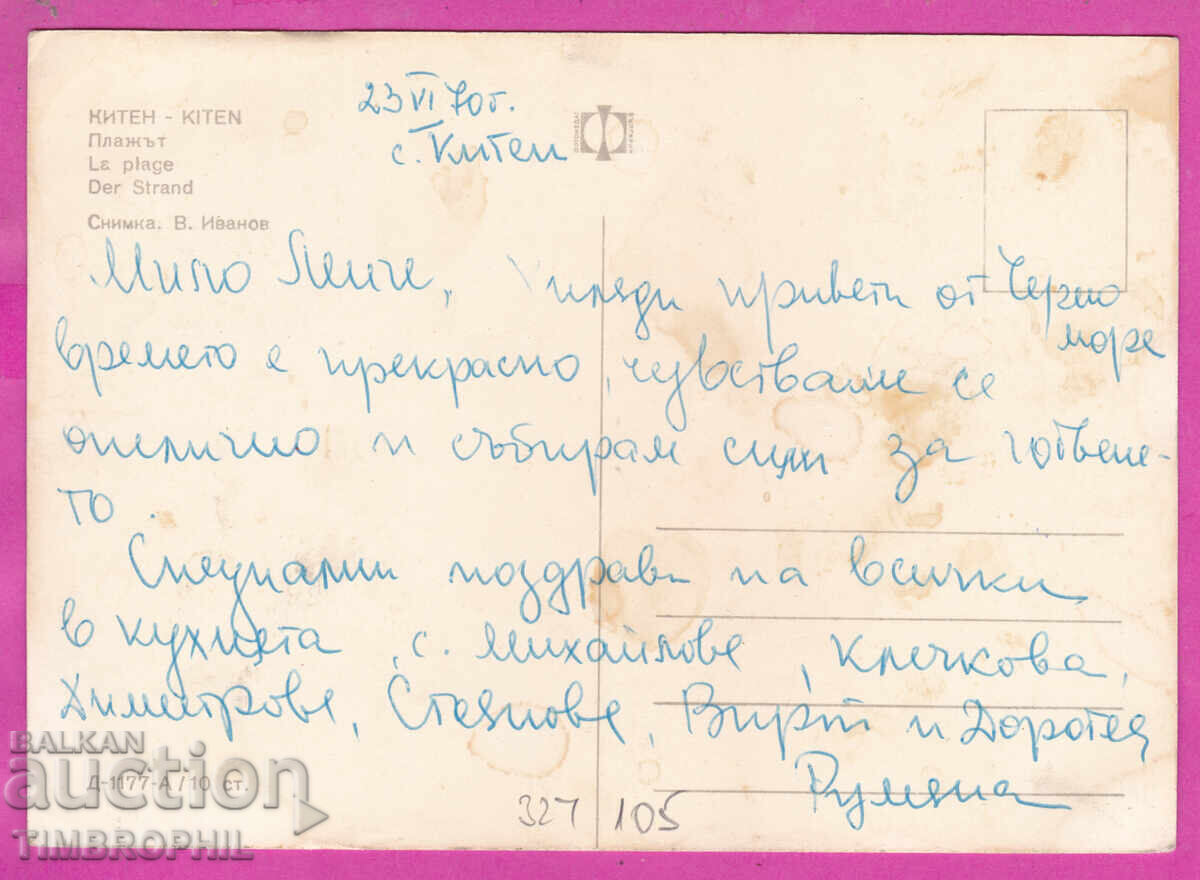 КИТЕН - KITEN
Плажът
La plage
Der Strand
Снимка. В. Иванов
23 VI 70г.
с. Китен
ФОТОИЗДАТ
Мило Ленче, Хиляди привети от Черно
море
времето е прекрасно, чувствам се
отлично и събирам сили за готвене-
то.
Специални поздрави на всички
в кухнята, с. Михайлове, Клечкова,
Димитрове, Стоянове, Вирт и Доротея
Румяна
Д-1177-А / 10 ст.
327 105
BALKAN
auction
TIMBROPHIL